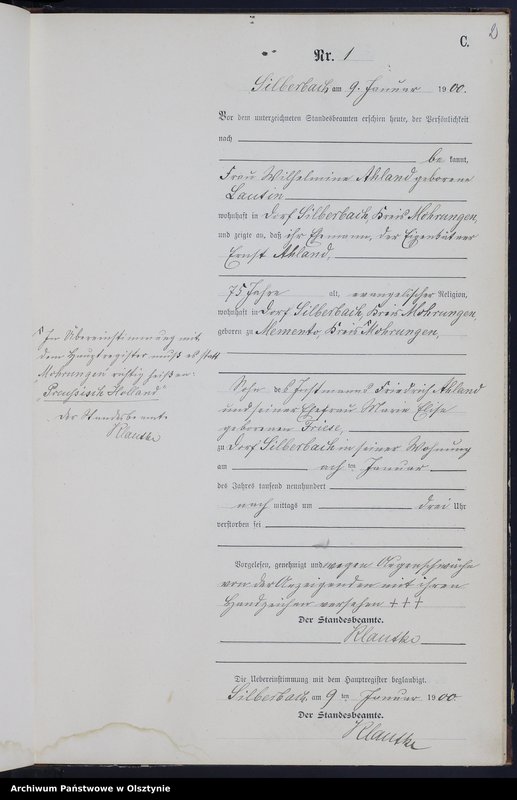 2
C.
Nr. 1
Silberbach, am 9. Januar 1900.
Vor dem unterzeichneten Standesbeamten erschien heute, der Persönlichkeit
nach
be kannt,
Frau Wilhelmine Ahland geborene
Lautin
wohnhaft in Dorf Silberbach, Kreis Mohrungen,
und zeigte an, daß ihr Ehemann, der Eigenkätner
Ernst Ahland,
75 Jahre alt, evangelischer Religion,
wohnhaft in Dorf Silberbach, Kreis Mohrungen
geboren zu Memento, Kreis Mohrungen,
Sohn des Instmanns Friedrich Ahland
und seiner Ehefrau Marie Elise
geborenen Friese,
zu Dorf Silberbach in seiner Wohnung
am acht ten Januar
des Jahres tausend neunhundert
nach mittags um drei Uhr
verstorben sei
Vorgelesen, genehmigt und wegen Augenschwäche
von der Anzeigenden mit ihren
Handzeichen versehen +++
Der Standesbeamte.
Klautke
Die Uebereinstimmung mit dem Hauptregister beglaubigt.
Silberbach, am 9 ten Januar 1900.
Der Standesbeamte.
Klautke
In Übereinstimmung mit
dem Hauptregister muß es statt
Mohrungen richtig heißen:
"Preußisch Holland"
Der Standesbeamte.
Klautke
Archiwum Państwowe w Olsztynie